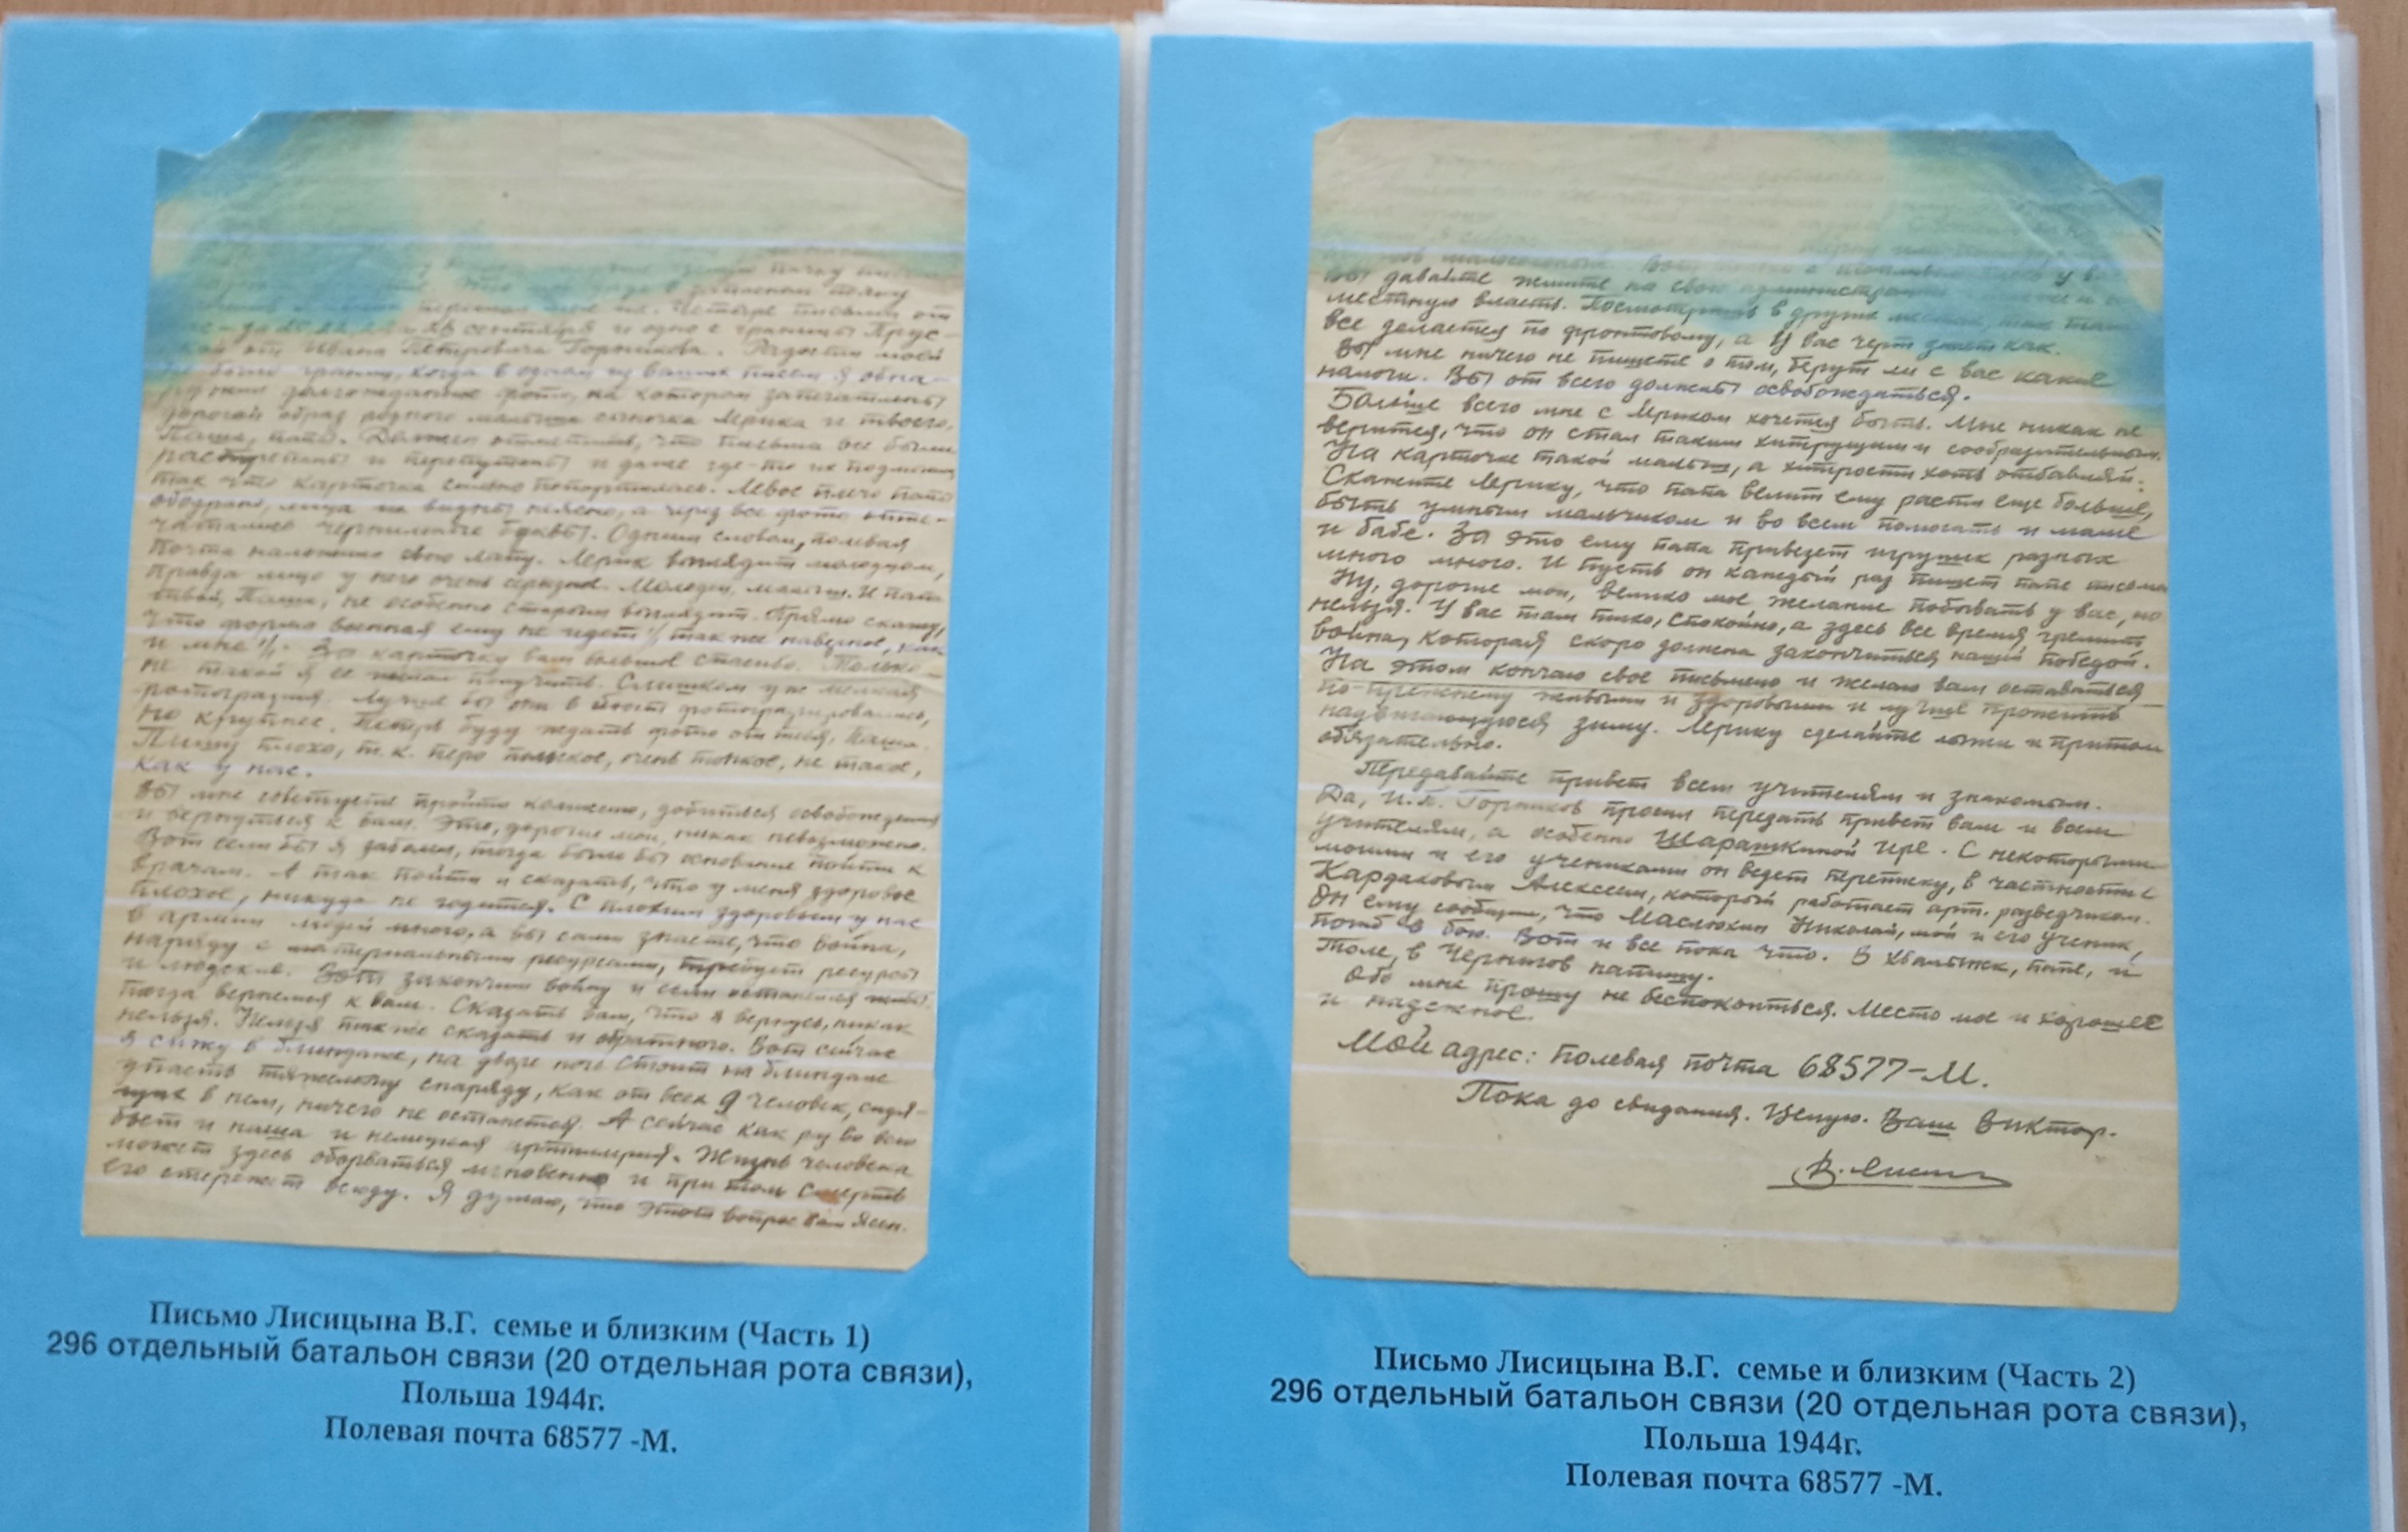 пачку
Четыре письма от
сентября и одно с границы Прус-
ской от Ивана Петровича Горшкова. Радости моей
не было границ, когда в одном из ваших писем я обна-
ружил долгожданное фото, на котором запечатлены
дорогой образ родного малыша сыночка Лерика и твоего,
Паша, папы. Должен отметить, что письма все были
и перепутаны и даже где-то их подмочили,
так что карточка сильно попортилась. Левое плечо папы
ободрано, лица не видны неясно, а через все фото отпе-
чатались чернильные буквы. Одним словом, полевая
почта наложила свою лапу. Лерик выглядит молодцом,
правда лицо у него очень серьезное. Молодец, малыш. И папа
твой, Паша, не особенно старым выглядит. Прямо скажу,
что форма военная ему не идет /так же наверное, как
и мне/. За карточку вам большое спасибо. Только
не такой я ее желал получить. Слишком уж мелкая
фотография. Лучше бы они в бюст фотографировались,
но крупнее. Теперь буду ждать фото от тебя, Паша.
Пишу плохо, т.к. перо польское, очень тонкое, не такое,
как у нас.
Вы мне советуете пройти комиссию, добиться освобождения
и вернуться к вам. Это, дорогие мои, никак невозможно.
Вот если бы я заболел, тогда было бы основание пойти к
врачам. А так пойти и сказать, что у меня здоровье
плохое, никуда не годится. С плохим здоровьем у нас
в армии людей много, а вы сами знаете, что война,
наряду с материальными ресурсами, требует ресурсы
и людские. Вот закончим войну и если останемся живы,
тогда вернемся к вам. Сказать вам, что я вернусь, никак
нельзя. Нельзя также сказать и обратного. Вот сейчас
я сижу в блиндаже, на дворе ночь. Стоит на блиндаж
упасть тяжелому снаряду, как от всех 9 человек, сидя-
щих в нем, ничего не останется. А сейчас как раз во всю
бьет и наша и немецкая артиллерия. Жизнь человека
может здесь оборваться мгновенно и при том смерть
его стережет всюду. Я думаю, что этот вопрос вам ясен.
Письмо Лисицына В.Г. семье и близким (Часть 1)
296 отдельный батальон связи (20 отдельная рота связи),
Польша 1944г.
Полевая почта 68577 -М.
у вас
Вы давайте жмите на свою администрацию
местную власть. Посмотришь в других местах, там
все делается по фронтовому, а у вас черт знает как.
Вы мне ничего не пишете о том, берут ли с вас какие
налоги. Вы от всего должны освобождаться.
Больше всего мне с Лериком хочется быть. Мне никак не
верится, что он стал таким хитрущим и сообразительным.
На карточке такой малыш, а хитрости хоть отбавляй.
Скажите Лерику, что папа велит ему расти еще больше,
быть умным мальчиком и во всем помогать и маме
и бабе. За это ему папа привезет игрушек разных
много много. И пусть он каждый раз пишет папе письма
Ну, дорогие мои, велико мое желание побывать у вас, но
нельзя. У вас там тихо, спокойно, а здесь все время гремит
война, которая скоро должна закончиться нашей победой.
На этом кончаю свое письмецо и желаю вам оставаться
по-прежнему живыми и здоровыми и лучше прожить
надвигающуюся зиму. Лерику сделайте лыжи и притом
обязательно.
Передавайте привет всем учителям и знакомым.
Да, И.П. Горшков просил передать привет вам и всем
учителям, а особенно Шарашкиной Ире. С некоторыми
моими и его учениками он ведет переписку, в частности с
Кардаковым Алексеем, который работает арт. разведчиком.
Он ему сообщил, что Маслюхин Николай, мой и его ученик,
погиб в бою. Вот и все пока что. В Хвалынск, папе, и
Толе, в Чернигов напишу.
Обо мне прошу не беспокоиться. Место мое и хорошее
и надежное.
Мой адрес: Полевая почта 68577-М.
Пока до свидания. Целую. Ваш Виктор.
Письмо Лисицына В.Г. семье и близким (Часть 2)
296 отдельный батальон связи (20 отдельная рота связи),
Польша 1944г.
Полевая почта 68577 -М.